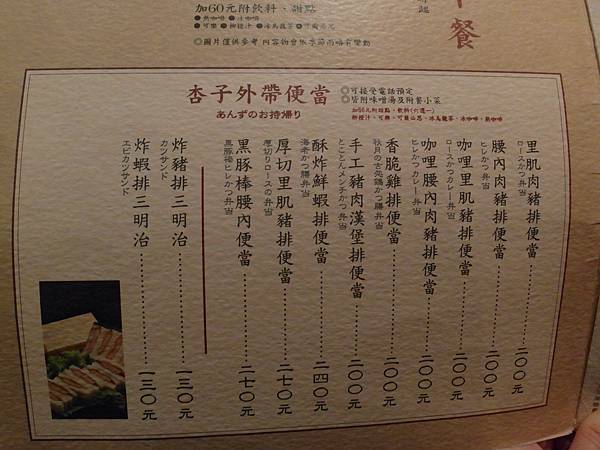 午餐
加60元附飲料、甜點
●熱咖啡 ●冰咖啡
◎圖片僅供參考 內容物會依季節而略有變動
杏子外帶便當
あんずのお持帰り
◎可接受電話預定
◎皆附味噌湯及附餐小菜
里肌肉豬排便當⋯⋯⋯二〇〇元
ロースかつ弁当
腰內肉豬排便當⋯⋯⋯二〇〇元
ヒレかつ弁当
咖哩里肌豬排便當⋯⋯⋯二〇〇元
ロースかつカレー弁当
咖哩腰內肉豬排便當⋯⋯⋯二〇〇元
ヒレかつカレー弁当
香脆雞排便當⋯⋯⋯二〇〇元
手工豬肉漢堡排便當⋯⋯⋯二〇〇元
とことんメンチかつ弁当
酥炸鮮蝦排便當⋯⋯⋯二四〇元
海老かつ膳弁当
厚切里肌豬排便當⋯⋯⋯二七〇元
厚切りロースの弁当
黑豚棒腰內便當⋯⋯⋯二七〇元
黒豚棒ヒレかつ弁当
炸豬排三明治⋯⋯⋯一三〇元
カツサンド
炸蝦排三明治⋯⋯⋯一三〇元
エビカツサンド